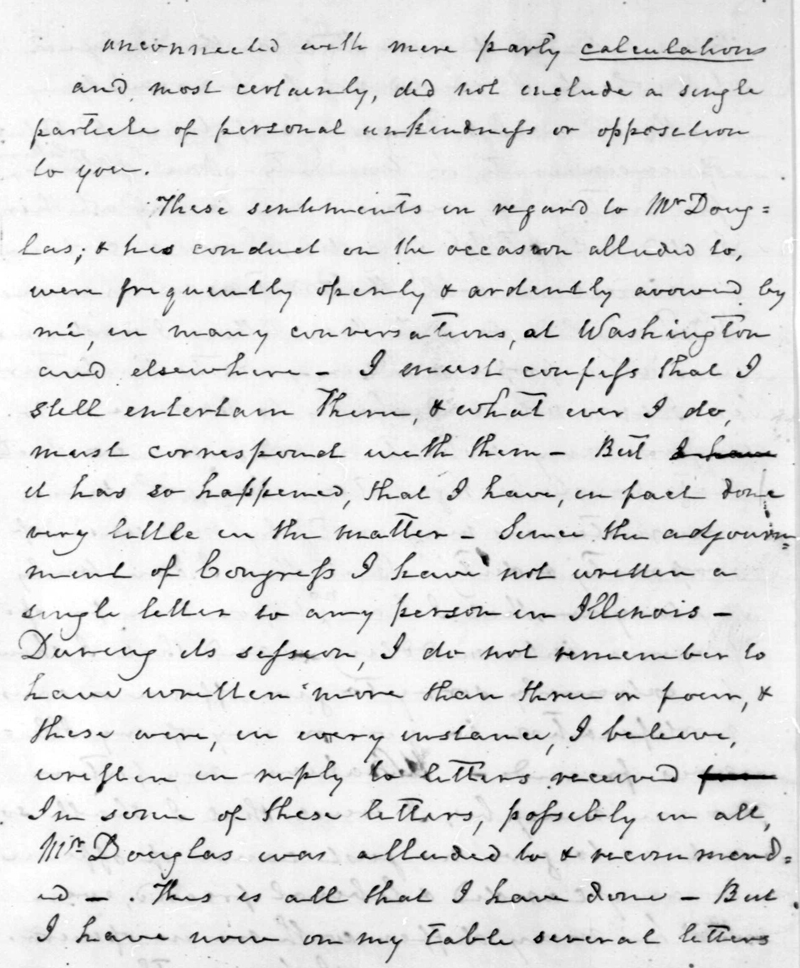 unconnected with mere party calculations
and most certainly, did not include a single
particle of personal unkindness or opposition
to you.
These sentiments in regard to Mr Doug=
las, & his conduct on the occasion alluded to,
were frequently openly & ardently avowed by
me, in many conversations, at Washington
and elsewhere - I must confess that I
still entertain them, & what ever I do,
must correspond with them - But I have
it has so happened, that I have, in fact done
very little in the matter - Since the adjourn=
ment of Congress I have not written a
single letter to any person in Illinois -
During its session, I do not remember to
have written more than three or four, &
these were, in every instance, I believe,
written in reply to letters received from
In some of these letters, possibly in all,
Mr. Douglas was alluded to & recommend=
ed - . This is all that I have done - But
I have now on my table several letters